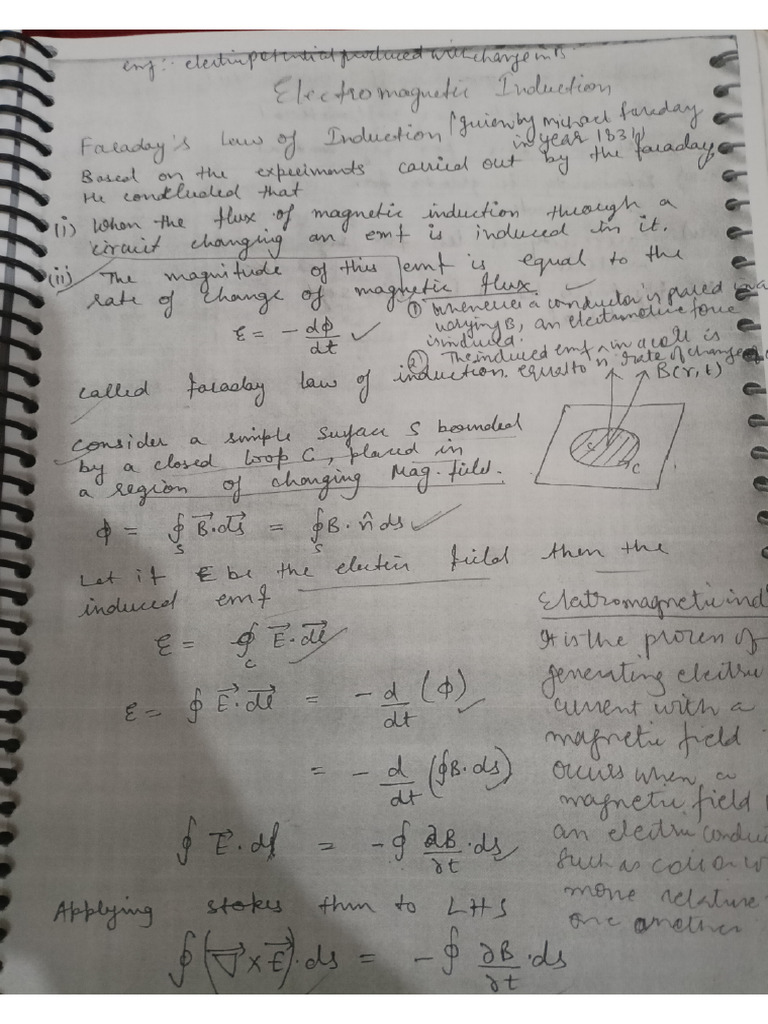 emf:- electric potential produced with change in B
Electromagnetic Induction
Faraday's Law of Induction (given by michael faraday
in year 1831)
Based on the experiments carried out by the faraday,
He concluded that
(i) When the flux of magnetic induction through a
circuit changing an emf is induced in it.
(ii) The magnitude of this emf is equal to the
rate of change of magnetic flux.
ε = - dφ/dt
① Whenever a conductor is placed in a
varying B, an electromotive force
is induced.
② The induced emf in a coil is
equal to rate of change of
called faraday law of induction.
B(r,t)
C
Consider a simple surface S bounded
by a closed loop C, placed in
a region of changing Mag. field.
φ = ∮_S B⃗·ds⃗ = ∮_S B·n̂ ds
Let if E be the electric field then the
induced emf
ε = ∮_C E⃗·dl⃗
ε = ∮ E⃗·dl⃗ = - d/dt (φ)
= - d/dt (∮B·ds)
∮ E⃗·dl = - ∮ ∂B/∂t·ds
Applying stokes thm to LHS
∮(∇⃗×E⃗)·ds = - ∮ ∂B/∂t·ds
Electromagnetic ind
It is the process of
generating electric
current with a
magnetic field
occurs when a
magnetic field
an electric conduc
such as coil or w
move relative
one another